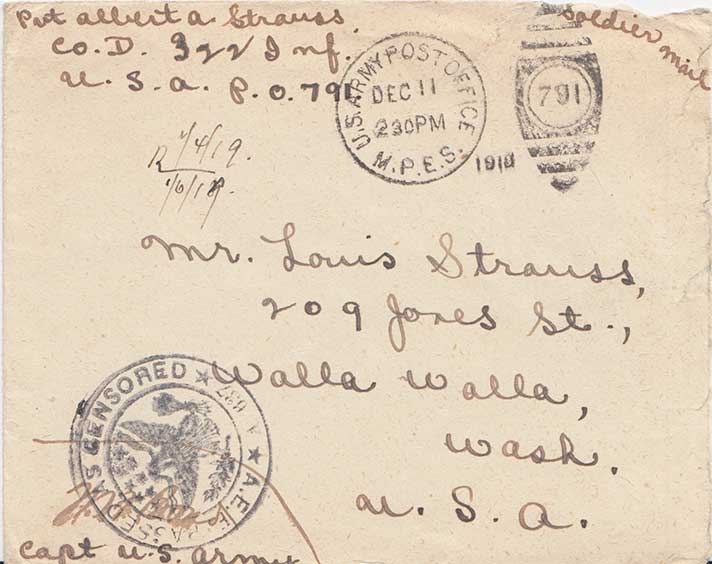 Pvt Albert A Strauss.
Co. D. 322 Inf.
U. S. A. P. O. 791
Soldier mail
U.S. ARMY POST OFFICE
DEC 11
230PM
M.P.E.S.
1918
791
R 1/4/19.
1/6/19.
Mr. Louis Strauss,
209 Jones St.,
Walla Walla,
Wash.
U. S. A.
PASSED AS CENSORED
A.E.F.
Capt U.S. Army